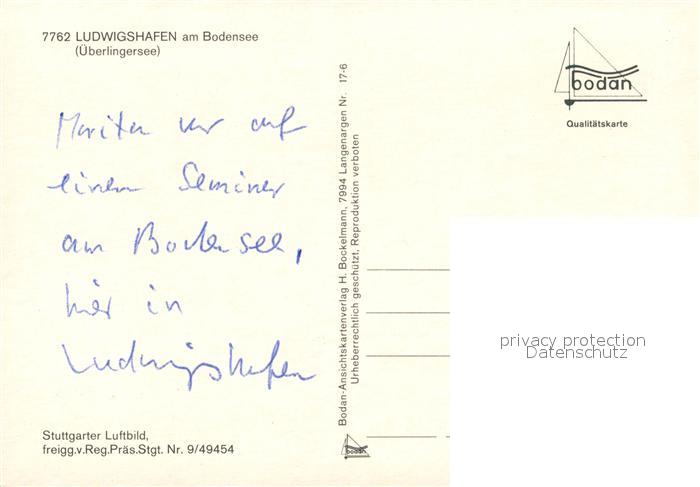 7762 LUDWIGSHAFEN am Bodensee
(Überlingersee)
Marita war auf
einem Seminar
am Bodensee,
hier in
Ludwigshafen
Stuttgarter Luftbild,
freigg.v.Reg.Präs.Stgt. Nr. 9/49454
Bodan-Ansichtskartenverlag H. Bockelmann, 7994 Langenargen Nr. 17-6
Urheberrechtlich geschützt, Reproduktion verboten
bodan
bodan
Qualitätskarte
privacy protection
Datenschutz